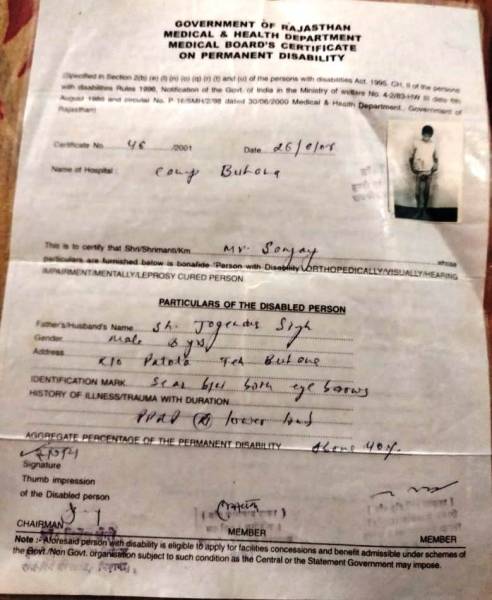 GOVERNMENT OF RAJASTHAN
MEDICAL & HEALTH DEPARTMENT
MEDICAL BOARD'S CERTIFICATE
ON PERMANENT DISABILITY
(Specified in Section 2(b) (e) (l) (n) (o) (q) (r) (t) and (u) of the persons with disabilities Act. 1995, CH. II of the persons
with disabilities Rules 1996, Notification of the Govt. of India in the Ministry of welfare No. 4-2/83-HW III date 6th
August 1986 and circular No. P 16/5MH/2/98 dated 30/06/2000 Medical & Health Department, Government of
Rajasthan)
Certificate No. 46 /2001 Date
Name of Hospital : Camp Buhana
This is to certify that Shri/Shrimanti/Km Mr. Sanjay whose
particulars are furnished below is bonafide "Person with Disability \ ORTHOPEDICALLY/VISUALLY/HEARING
IMPAIRMENT/MENTALLY/LEPROSY CURED PERSON.
PARTICULARS OF THE DISABLED PERSON
Father's/Husband's Name Sh. Jogender Sigh
Gender male 8 yrs
Address R/o Patota Teh Buhana
IDENTIFICATION MARK Scar b/w both eye brows
HISTORY OF ILLNESS/TRAUMA WITH DURATION
PPRP (R) lower limb
AGGREGATE PERCENTAGE OF THE PERMANENT DISABILITY Above 40%
Signature
Thumb impression
of the Disabled person
CHAIRMAN MEMBER MEMBER
Note :- Aforesaid person with disability is eligible to apply for facilities concessions and benefit admissible under schemes of
the Govt./Non Govt. organisation subject to such condition as the Central or the Statement Government may impose.